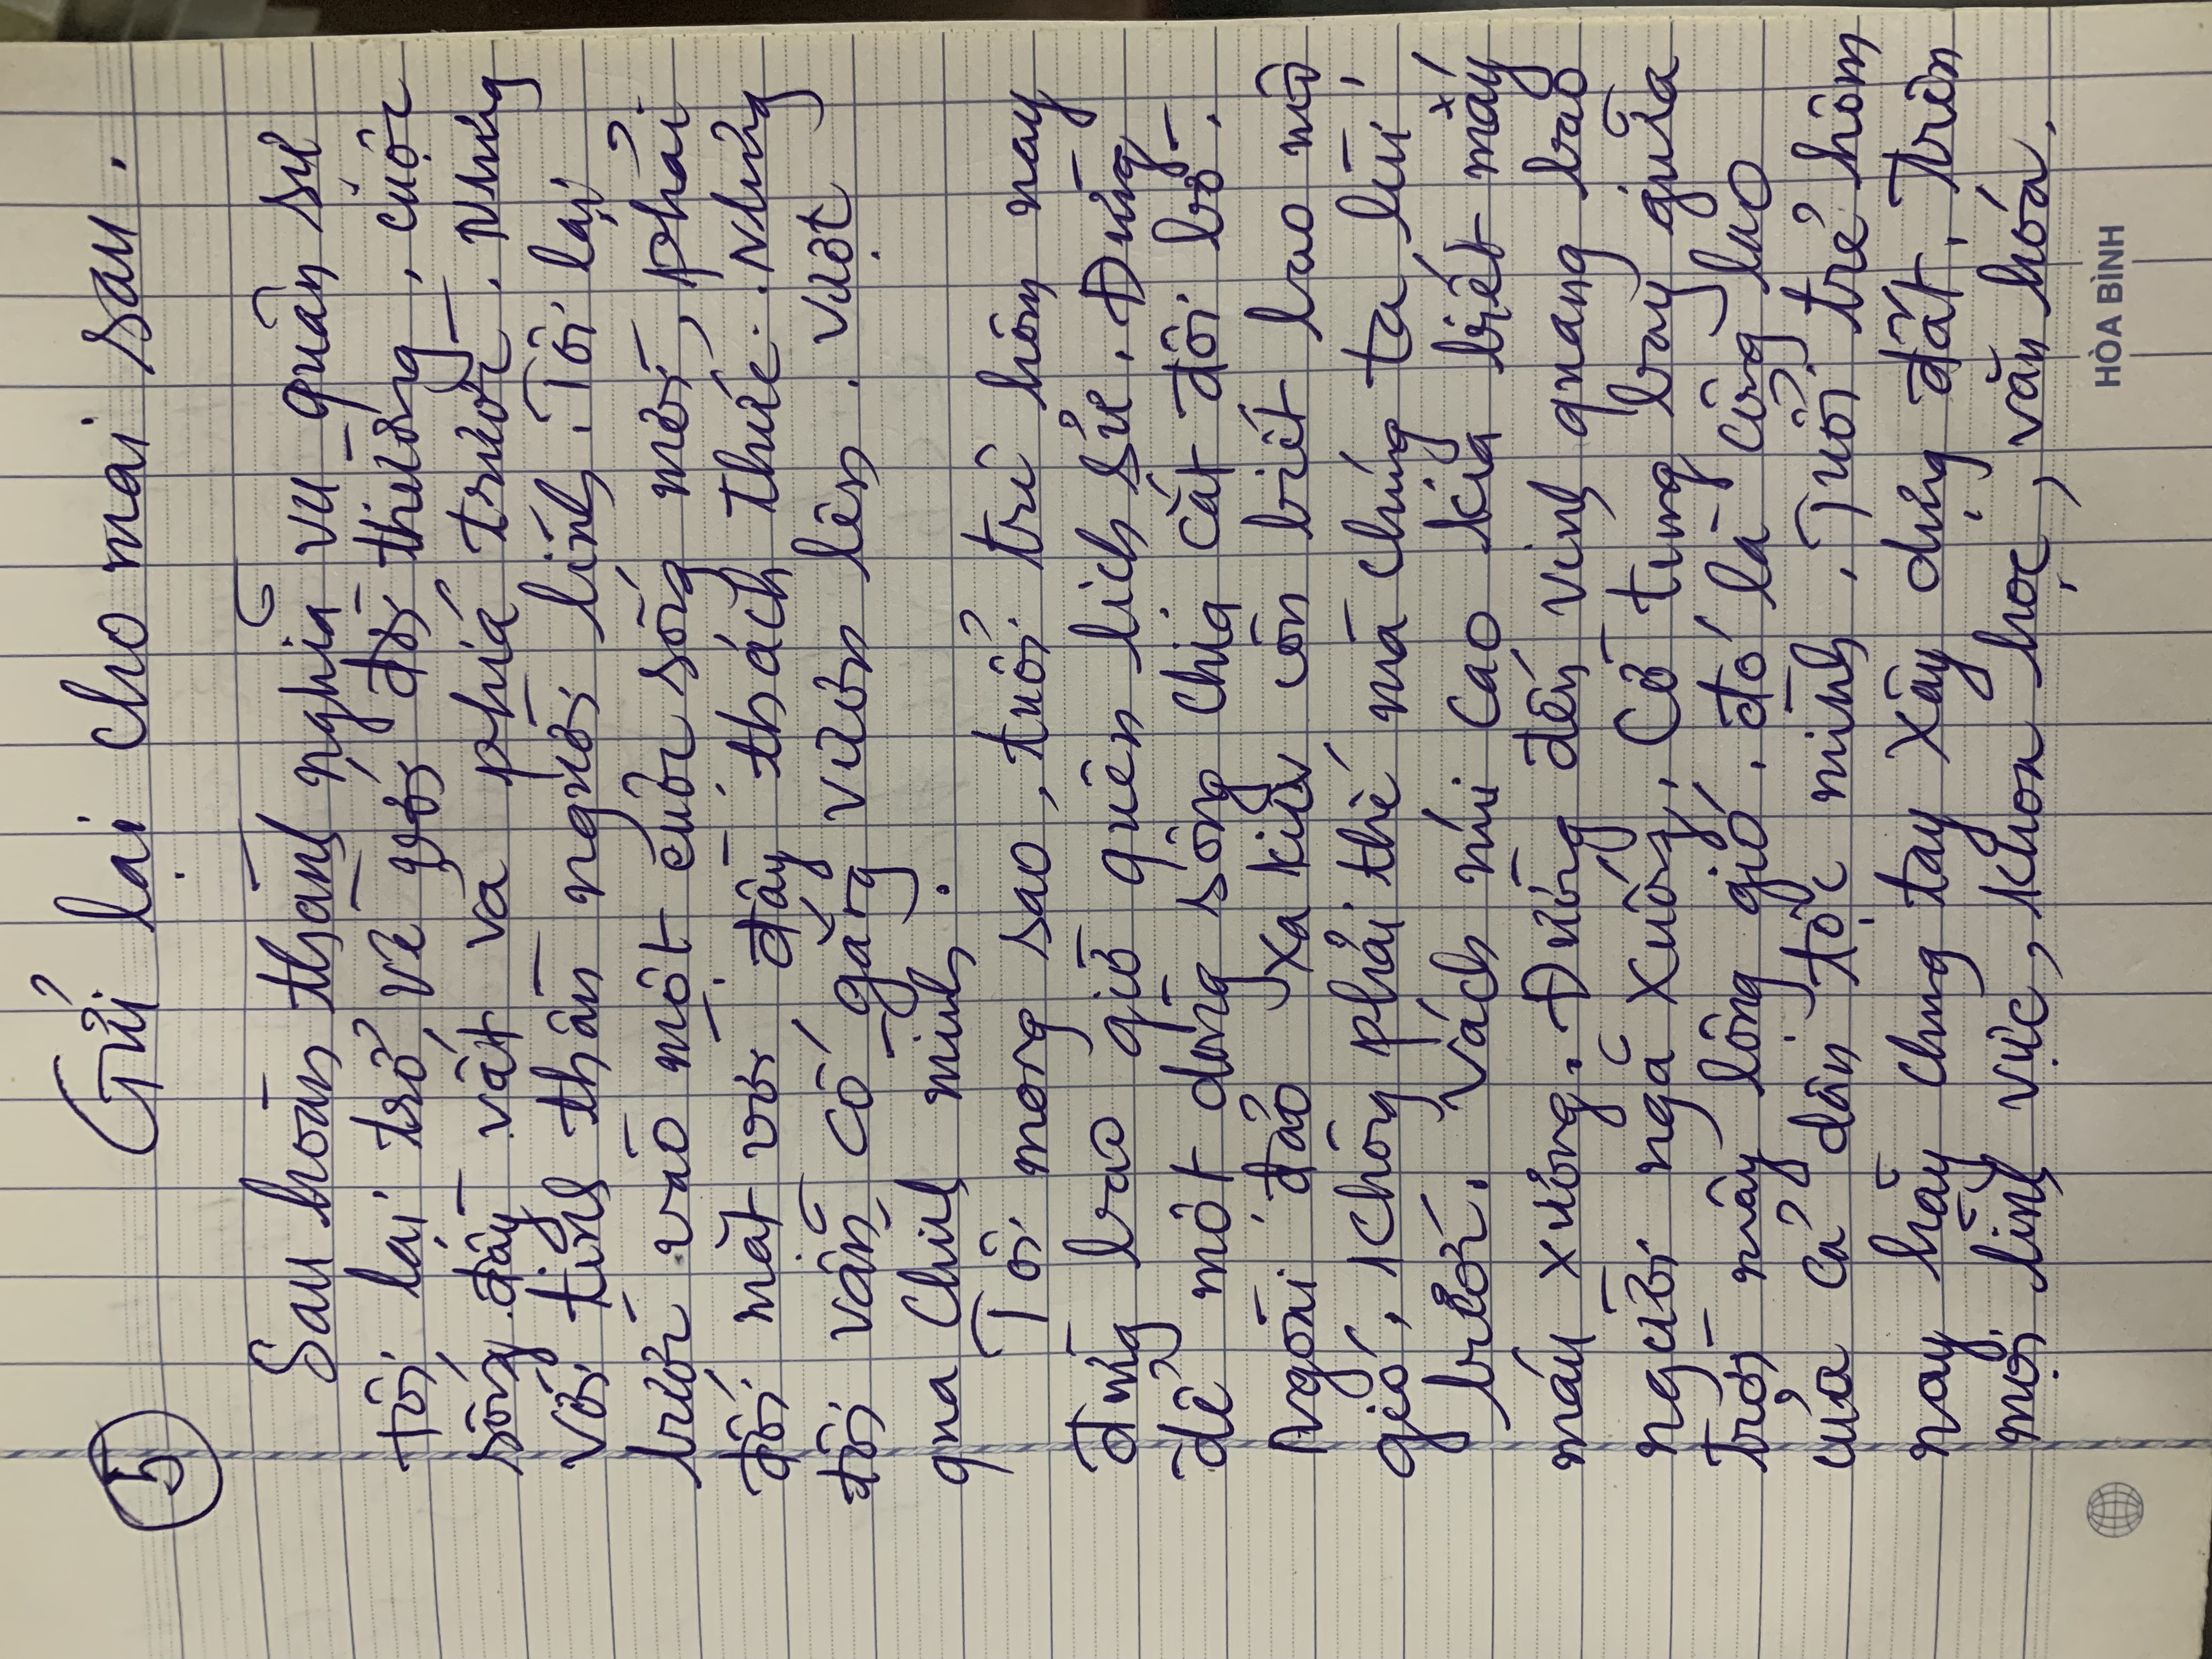 5
Gửi lại cho mai sau.
Sau hoàn thành nghĩa vụ quân sự
tôi lại trở về với đời thường, cuộc
sống đầy vất vả phía trước. Nhưng
với tinh thần người lính. Tôi lại
bước vào một cuộc sống mới, phải
đối mặt với đầy thách thức. Nhưng
tôi vẫn cố gắng vươn lên. Vượt
qua chính mình.
Tôi mong sao, tuổi trẻ hôm nay
đừng bao giờ quên lịch sử. Đừng
để một dòng sông chia cắt đôi bờ.
Ngoài đảo xa kia còn biết bao mưa
gió, không phải thế mà chúng ta lùi
bước. Vách núi cao kia biết mấy
máu xương. Đường đến vinh quang bao
người ngã xuống. Cờ tung bay giữa
trời mây lộng gió. đó là công lao
của cả dân tộc mình. Tuổi trẻ hôm
nay hãy chung tay xây dựng đất. Trên
mọi lĩnh vực, khoa học, văn hóa.
HÒA BÌNH